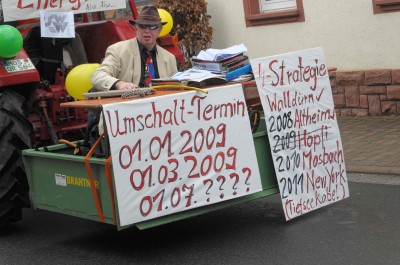 Umschalt-Termin
01.01 2009
01.03.2009
01.07. ? ? ? ?
4-Strategie
Walldürn ✓
2008 Altheim ✓
2009 Höpfi ✓
2010 Mosbach
2011 New York
(Tiefseekabel)
BRANTNER